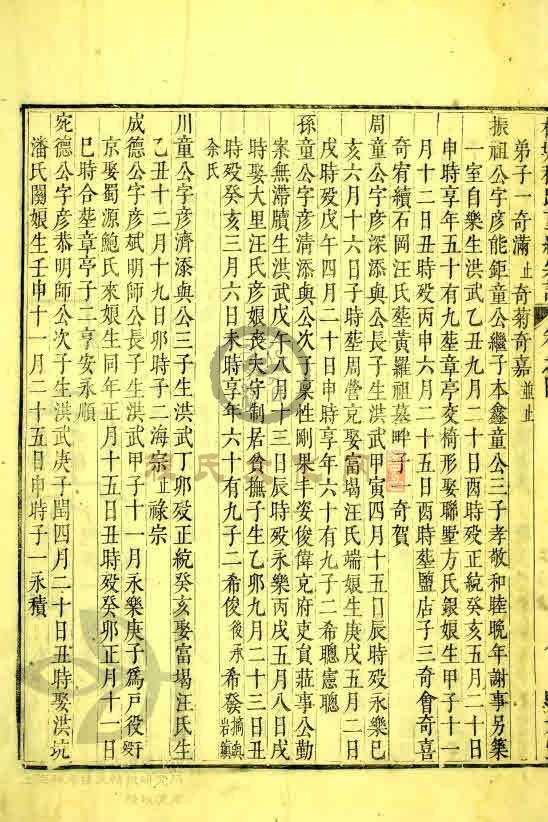 弟子一奇滿止奇菊奇嘉並止
振祖公字彥能鉅童公繼子本鑫童公三子孝敬和睦晚年謝事另築
一室自樂生洪武乙丑九月二十日酉時歿正統癸亥五月二十日
申時享年五十有九塟章亭交椅形娶聯墅方氏銀娘生甲子十一
月十二日丑時歿丙申六月二十五日酉時塟鹽店子三奇會奇喜
奇宥續石岡汪氏塟黃羅祖墓畔子一奇賀
周童公字彥深添與公長子生洪武甲寅四月十五日辰時歿永樂己
亥六月十六日子時塟周營充娶富堨汪氏端娘生庚戌五月二日
戌時歿戊午四月二十日申時享年六十有九子二希聰憲聰
孫童公字彥淸添與公次子稟性剛果丰姿俊偉克府吏貟蒞事公勤
案無滯牘生洪武戊午八月三日辰時歿永樂丙戌五月八日戌
時娶大里汪氏彥娘喪夫守制居貧撫子生乙卯九月二十三日丑
時歿癸亥三月六日未時享年六十有九子二希俊後承希發摘與岩鎭
余氏
川童公字彥濟添與公三子生洪武丁卯歿正統癸亥娶富堨汪氏生
乙丑十二月十九日卯時子二海宗止祿宗
成德公字彥斌明師公長子生洪武甲子十一月永樂庚子爲戶役歿于
京娶蜀源鮑氏來娘生同年正月十五日丑時歿癸卯正月十一日
巳時合塟章亭子二亨安永順
宛德公字彥恭明師公次子生洪武庚子閏四月二十日丑時娶洪坑
潘氏關娘生壬申十一月二十五日申時子一永積